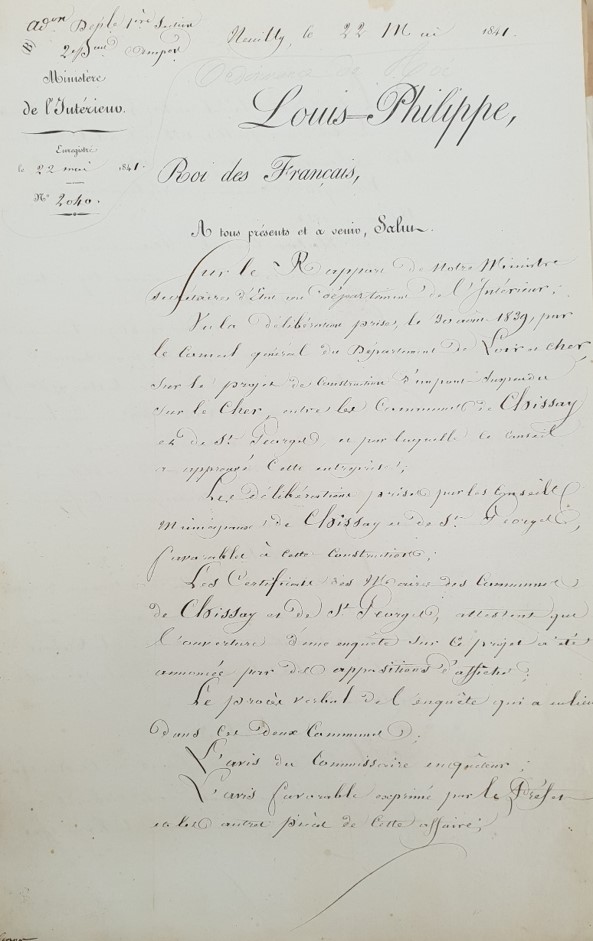 adon Deple 1ère Section
(B) 2e Bau
Neuilly, le 22 Mai 1841.
Ministère
de l'Intérieur.
Enregistré
le 22 mai 1841.
No 2040.
Ordonnance du Roi
Louis-Philippe,
Roi des Français,
A tous présents et à venir, Salut.
Sur le Rapport de Notre Ministre
secrétaire d'Etat au département de l'Intérieur;
Vu la délibération prise, le 30 août 1839, par
le Conseil général du Département de Loir et Cher,
sur le projet de Construction d'un pont suspendu
sur le Cher, entre les Communes de Chissay
et de St Georges, et par laquelle le conseil
a approuvé cette entreprise;
Les délibérations prises par les Conseils
Municipaux de Chissay et de St Georges,
favorables à cette construction;
Les Certificats des Maires des Communes
de Chissay et de St Georges, attestant que
l'ouverture d'une enquête sur ce projet a été
annoncée par des appositions d'affiches;
Le procès verbal de l'enquête qui a eu lieu
dans ces deux Communes;
L'avis du Commissaire enquêteur;
L'avis favorable exprimé par le Préfet
et les autres pièces de cette affaire;